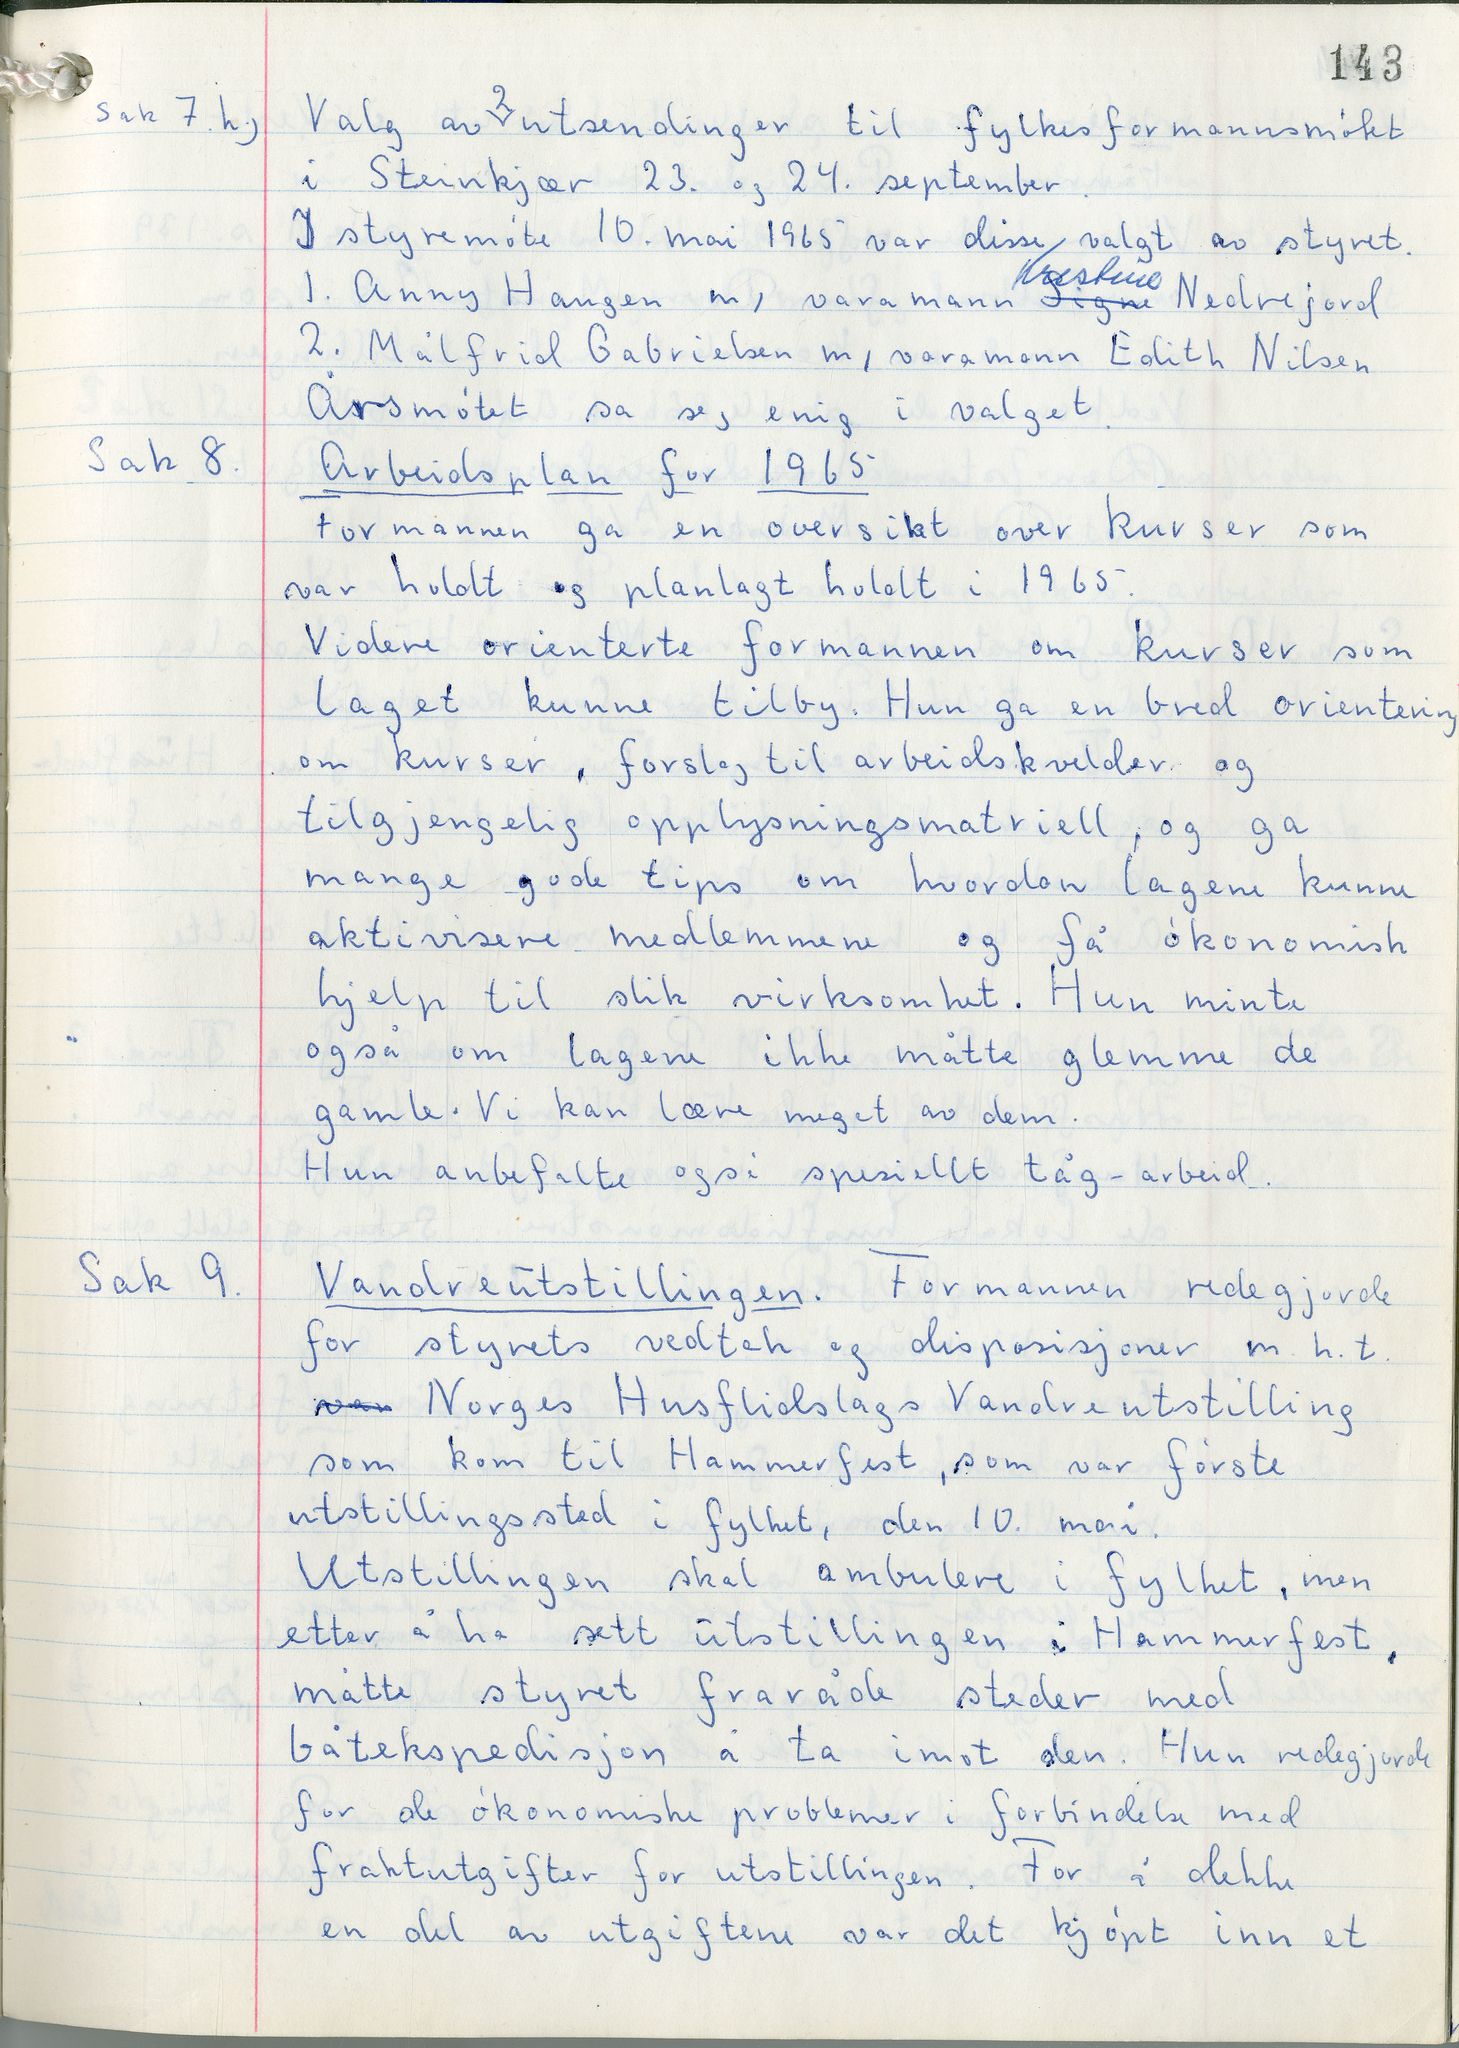 143
Sak 7. h) Valg av 2 utsendinger til fylkesformannsmøtet
i Steinkjær 23. og 24. september.
I styremøte 10. mai 1965 var disse valgt av styret.
1. Anny Haugen m, varamann Signe Kristine Nedrejord
2. Målfrid Gabrielsen m, varamann Edith Nilsen
Årsmøtet sa seg enig i valget.
Sak 8. Arbeidsplan for 1965
Formannen ga en oversikt over kurser som
var holdt og planlagt holdt i 1965.
Videre orienterte formannen om kurser som
laget kunne tilby. Hun ga en bred orientering
om kurser, forslag til arbeidskvelder og
tilgjengelig opplysningsmatriell, og ga
mange gode tips om hvordan lagene kunne
aktivisere medlemmene og få økonomisk
hjelp til slik virksomhet. Hun minte
også om lagene ikke måtte glemme de
gamle. Vi kan lære meget av dem.
Hun anbefalte også spesiellt tåg-arbeid.
Sak 9. Vandreutstillingen. Formannen redegjorde
for styrets vedtak og disposisjoner m.h.t.
van Norges Husflidslags Vandreutstilling
som kom til Hammerfest, som var første
utstillingssted i fylket, den 10. mai.
Utstillingen skal ambulere i fylket, men
etter å ha sett utstillingen i Hammerfest,
måtte styret fraråde steder med
båtekspedisjon å ta imot den. Hun redegjorde
for de økonomiske problemer i forbindelse med
fraktutgifter for utstillingen. For å dekke
en del av utgiftene var det kjøpt inn et